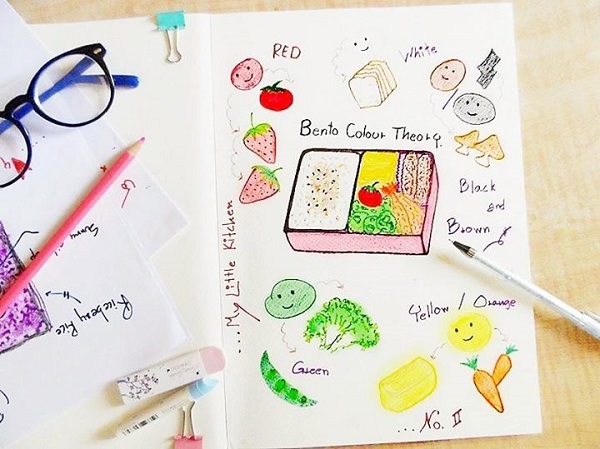 RED
White
Bento Colour Theory.
Black
and
Brown
...My Little Kitchen
Green
Yellow / Orange
...No. II
Riceberry
Rice